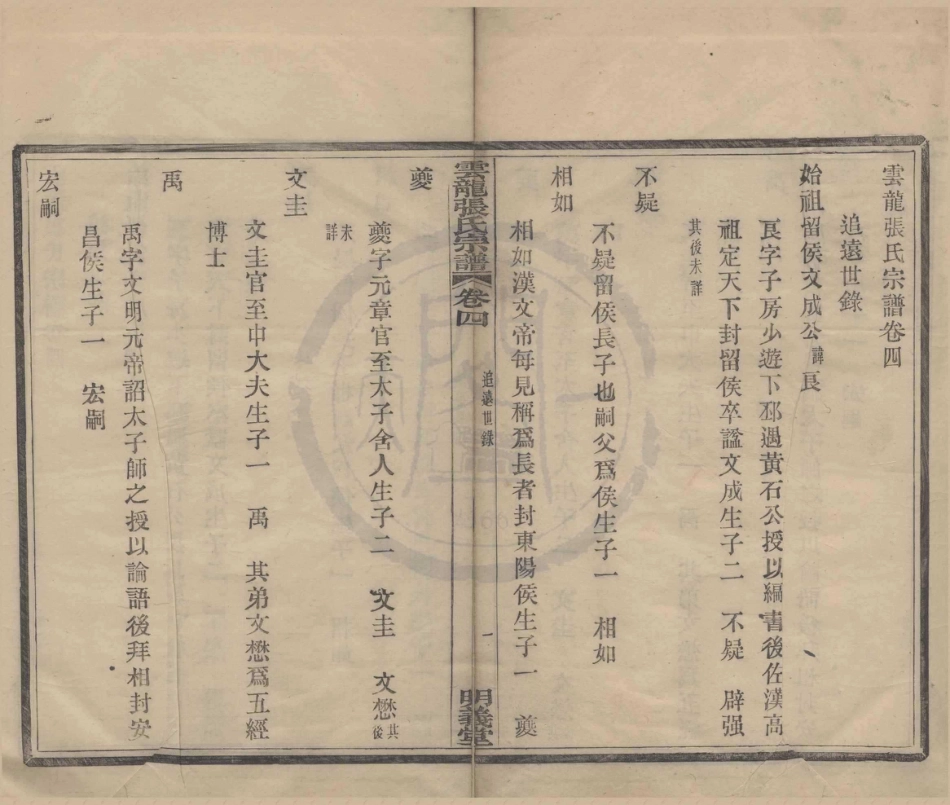 雲龍張氏宗譜卷四
追遠世錄
始祖留侯文成公諱良
良字子房少遊下邳遇黃石公授以編書後佐漢高
祖定天下封留侯卒謚文成生子二 不疑 辟强
其後未詳
不疑
不疑留侯長子也嗣父爲侯生子一 相如
相如
相如漢文帝每見稱爲長者封東陽侯生子一 夔
雲龍張氏宗譜 卷四 追遠世錄 一 明義堂
夔
夔字元章官至太子舍人生子二 文圭 文懋其後
未詳
文圭
文圭官至中大夫生子一 禹 其弟文懋爲五經
博士
禹
禹字文明元帝詔太子師之授以論語後拜相封安
昌侯生子一 宏嗣
宏嗣